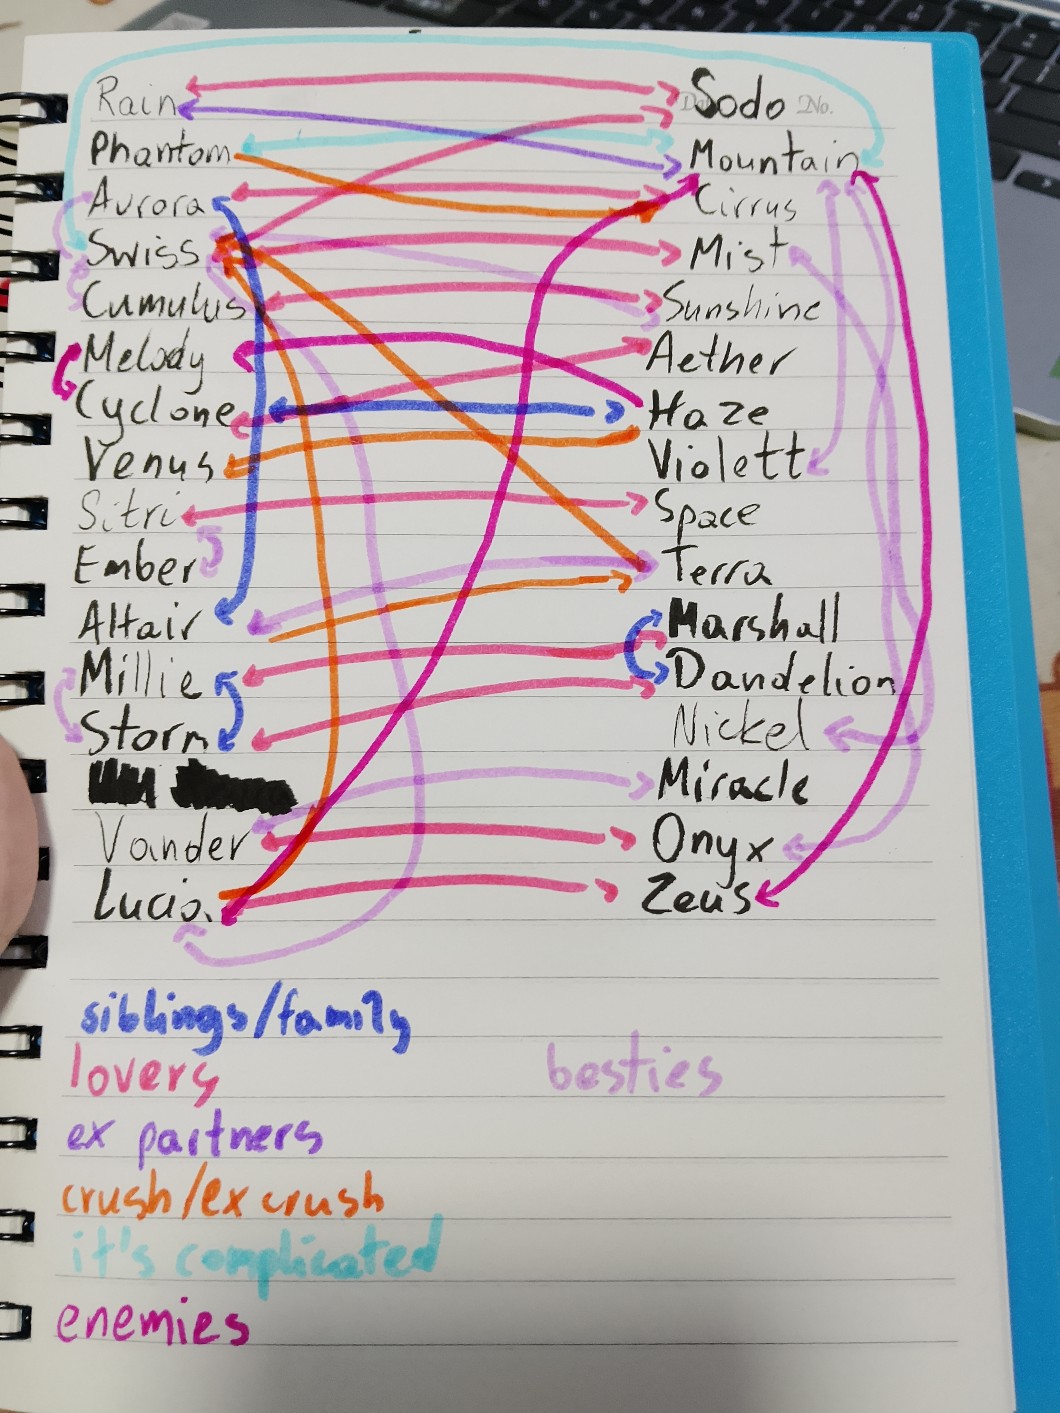 Rain Sodo No.
Phantom Mountain
Aurora Cirrus
Swiss Mist
Cumulus Sunshine
Melody Aether
Cyclone Haze
Venus Violett
Sitri Space
Ember Terra
Altair Marshall
Millie Dandelion
Storm Nickel
Miracle
Vander Onyx
Lucio. Zeus
siblings/family
lovers besties
ex partners
crush/ex crush
it's complicated
enemies